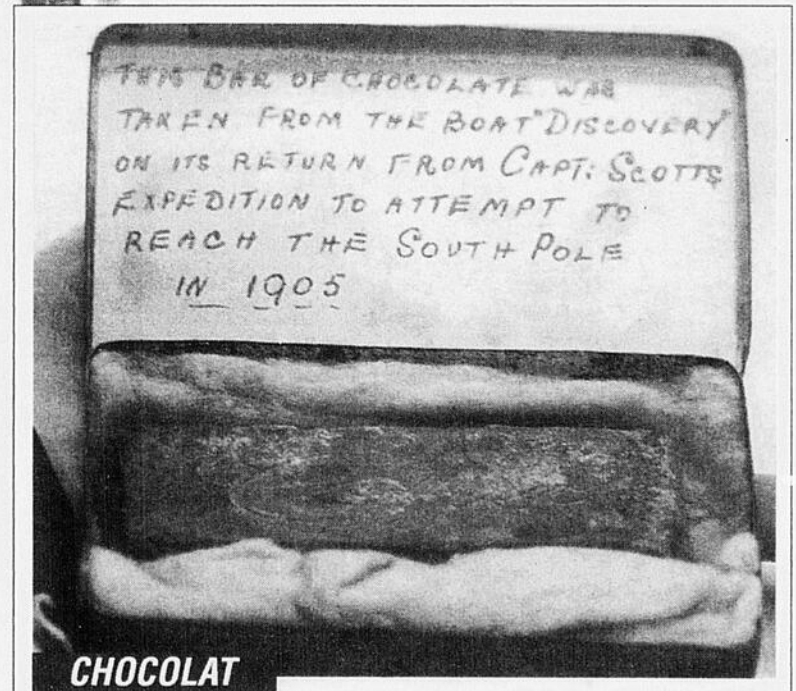 THIS BAR OF CHOCOLATE WAS
TAKEN FROM THE BOAT "DISCOVERY"
ON ITS RETURN FROM CAPT: SCOTTS
EXPEDITION TO ATTEMPT TO
REACH THE SOUTH POLE
IN 1905
CHOCOLAT